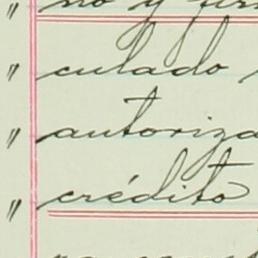 no y fir
" culado
" autoriza
" crédito